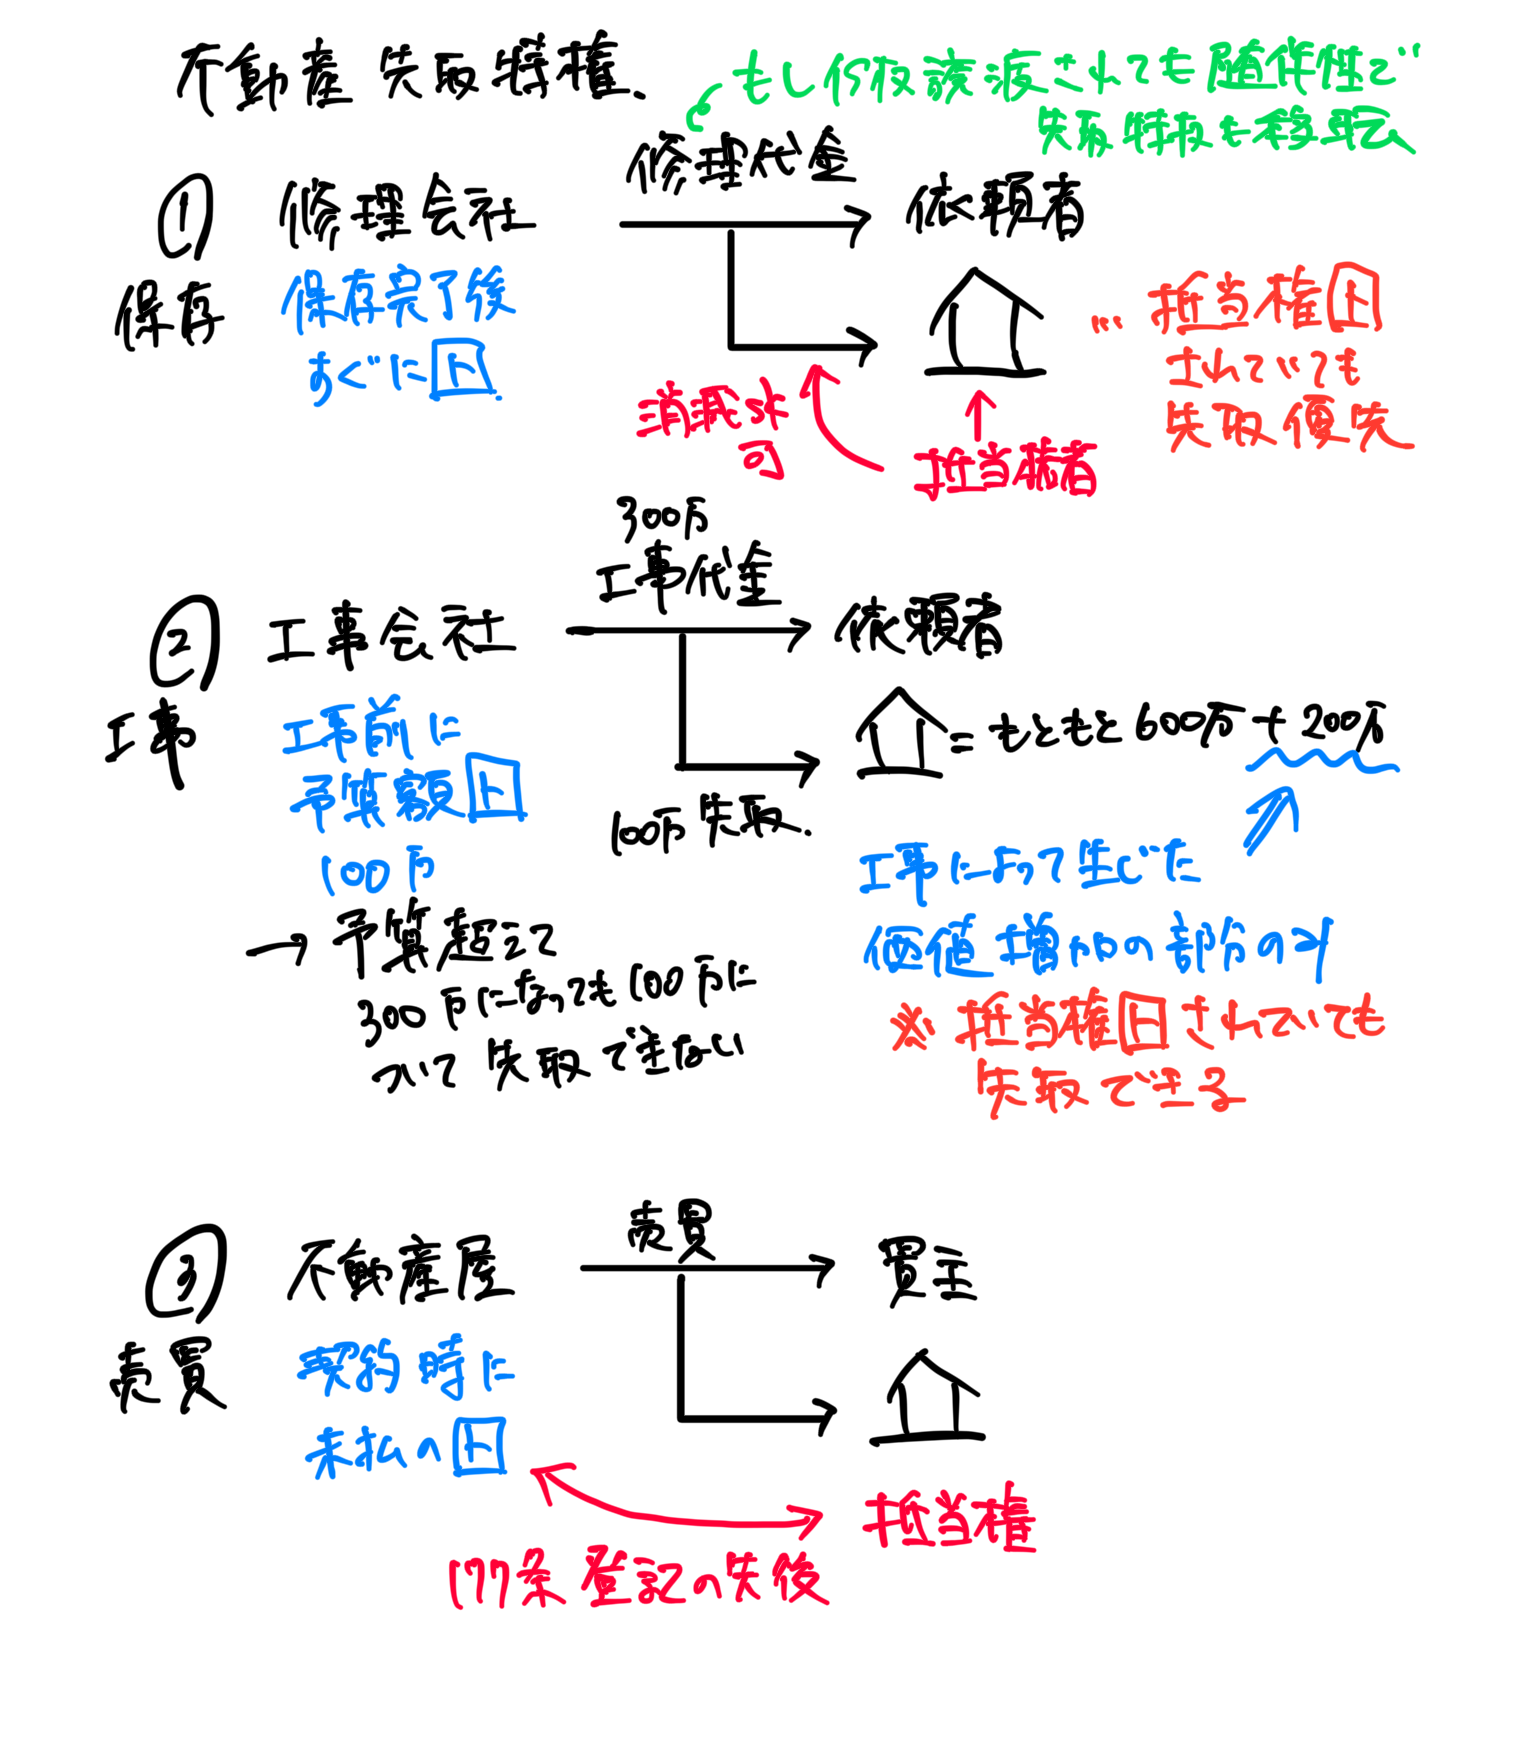 不動産 先取特権.
もし债权譲渡されても随伴性で
先取特权も移転
修理代金
① 修理会社
依頼者
保存
保存完了後
すぐに㋣.
… 抵当権㋣
されていても
先取優先
消滅求
可
抵当権者
300万
工事代金
② 工事会社
依頼者
工事
工事前に
予算額㋣
100万
= もともと600万 + 200万
100万先取.
工事によって生じた
価値増加の部分のみ
→ 予算超えて
300万になっても100万に
ついて先取できない
※ 抵当権㋣されていても
先取できる
売買
③ 不動産屋
買主
売買
契約時に
未払の㋣
抵当権
177条 登記の先後